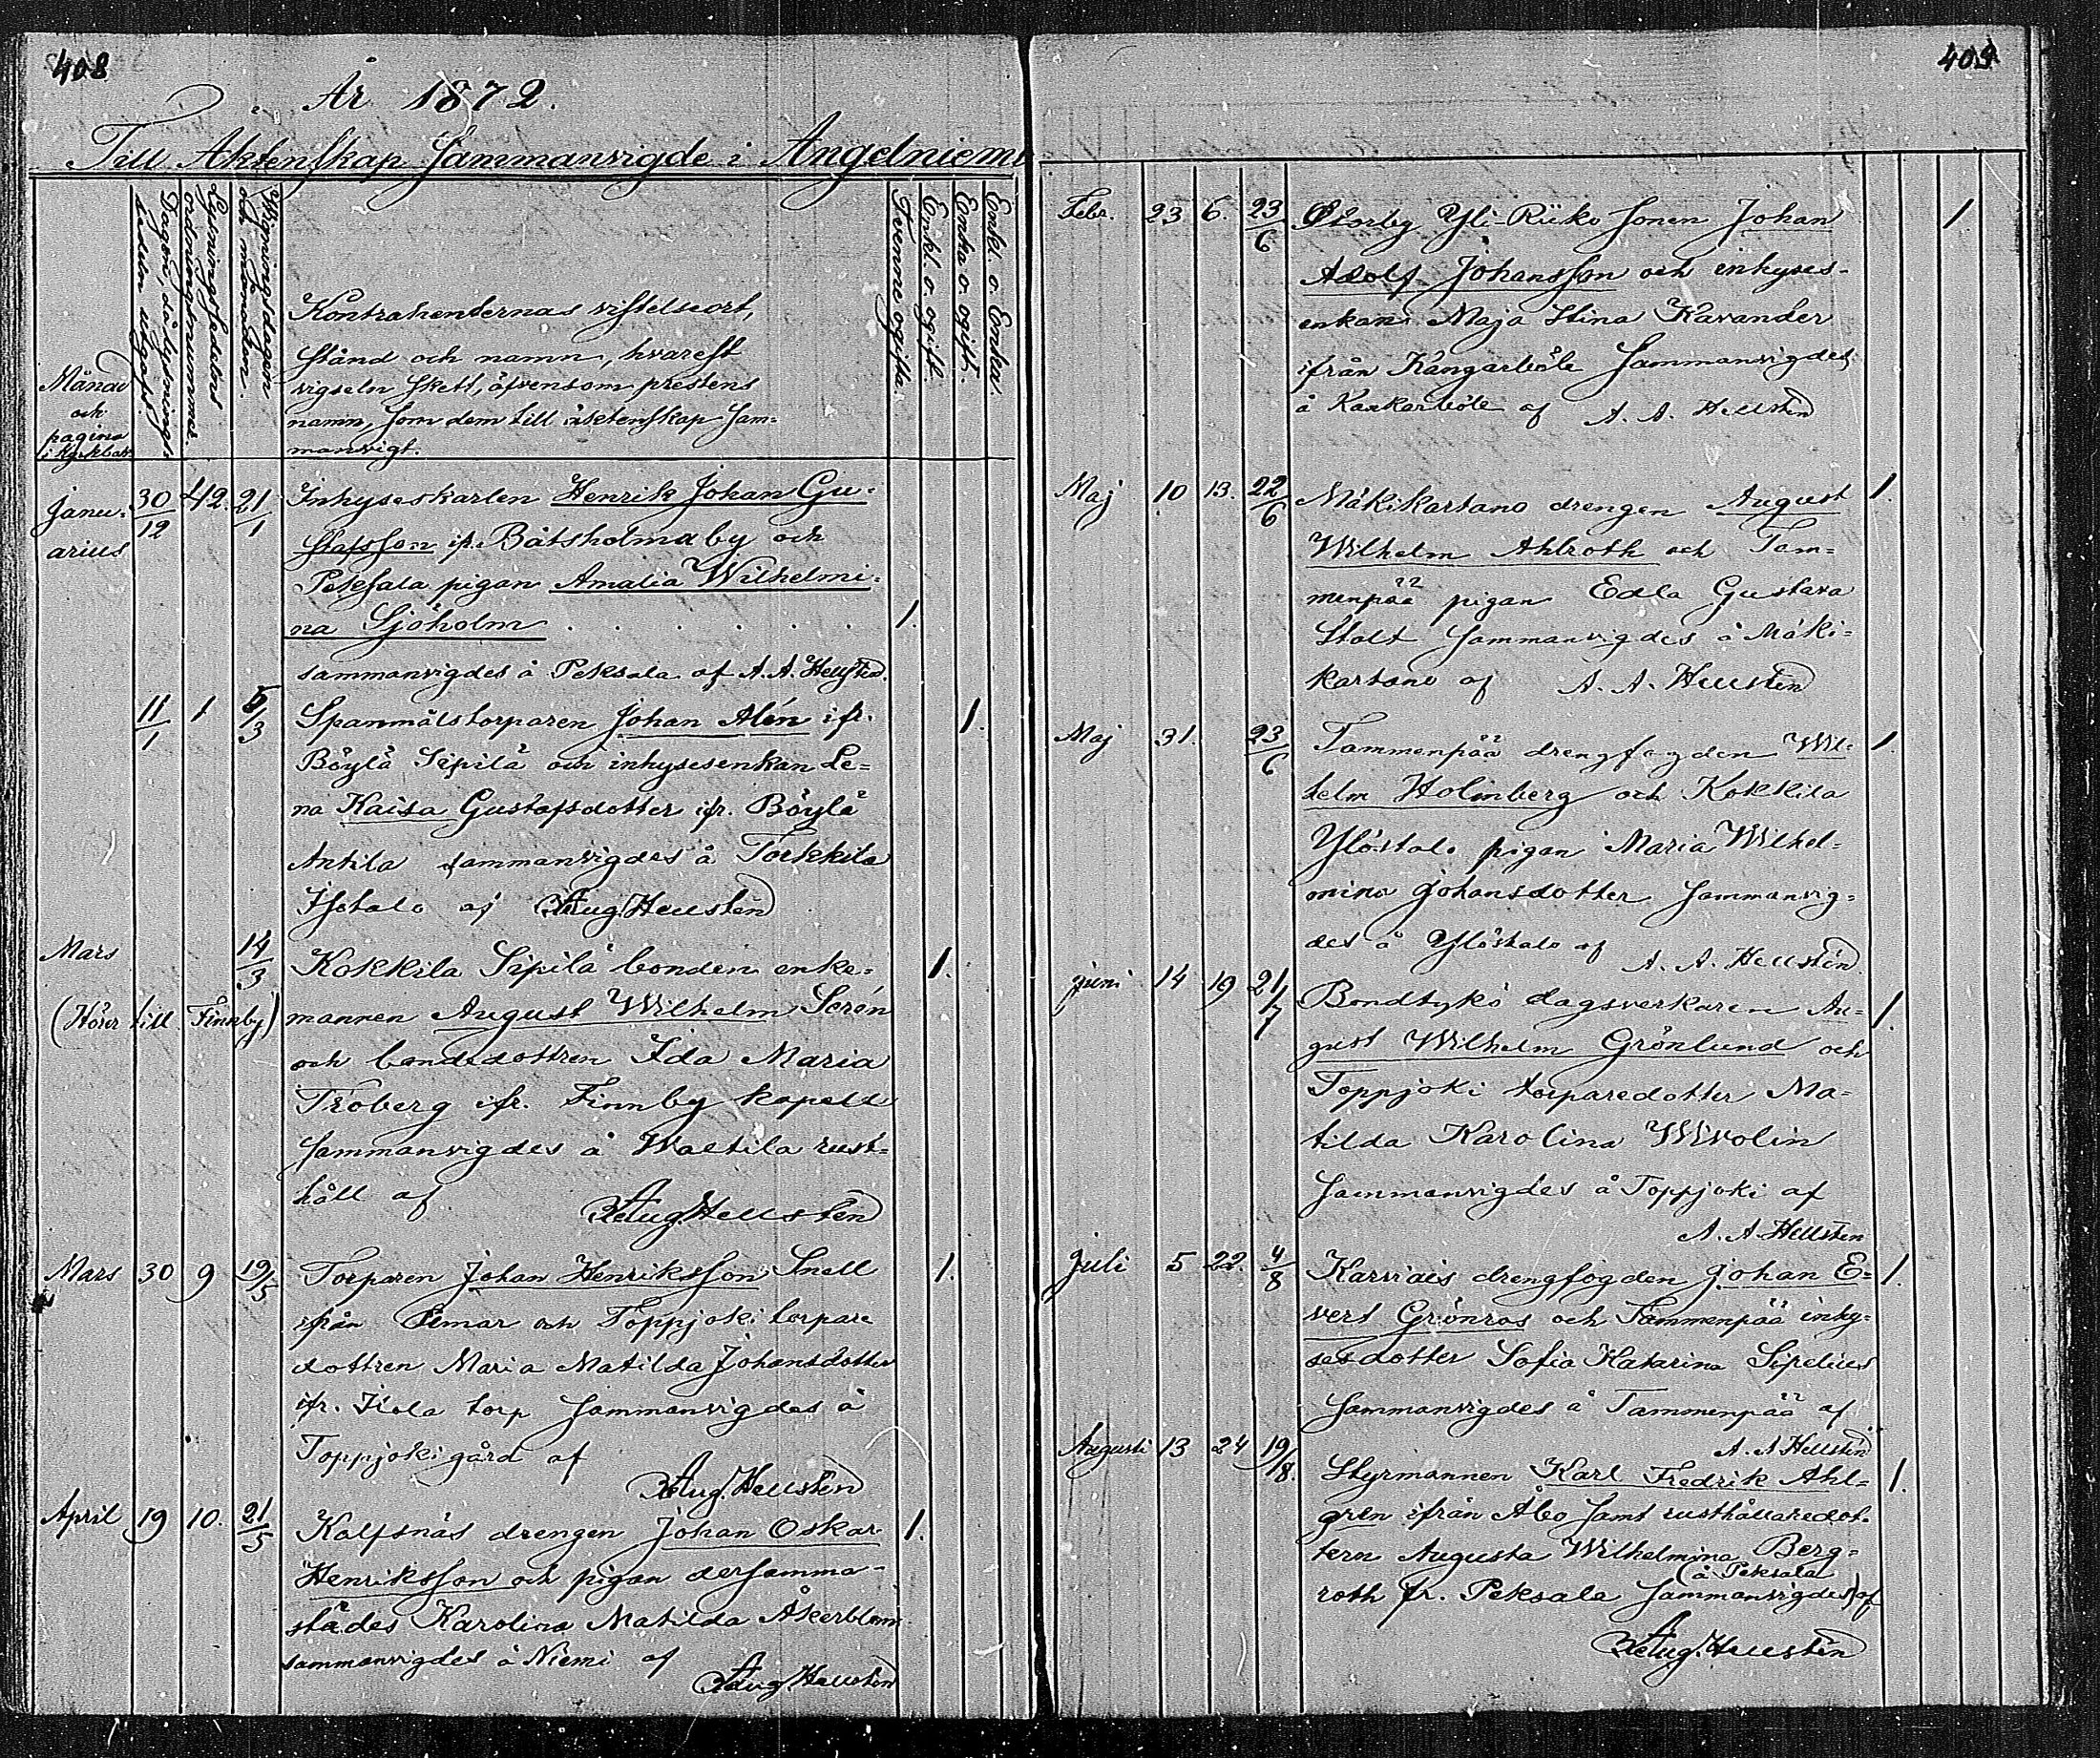 408
År 1872.
Till Äktenskap Sammanvigde i Angelniemi
Månad
och
pagina
i Kyrkbok.
Dagen, då lysnings-
sedeln utgafs.
Lysningssedelns
ordningsnummer.
Vigningsdagen
och månaden.
Kontrahenternas vistelseort,
stånd och namn, hvarest
vigseln skett, äfvensom prestens
namn, som dem till äktenskap sam-
manvigt.
Tvenne ogifta.
Enkl. o. ogift.
Enka o. ogift.
Enkl. o. Enka.
Janu- 30/12 42. 21/1 Inhyseskarlen Henrik Johan Gu-
arius stafsson ifr. Båtsholma by och
Peksala pigan Amalia Wilhelmi-
na Sjöholm . . . . . . . 1.
sammanvigdes å Peksala af A. A. Hellsten
11/1 1 5/3 Spanmålstorparen Johan Alén ifr. 1.
Böylä Sipilä och inhysesenkan Le-
na Kaisa Gustafsdotter ifr. Böylä
Antila sammanvigdes å Torkkila
Isotalo af Aug. Hellsten
Mars 14/3 Kokkila Sipilä bonden enke- 1.
(Hörer till Finnby) mannen August Wilhelm Serén
och bondedottren Ida Maria
Fröberg ifr. Finnby kapell
sammanvigdes å Waltila rust-
håll af
Aug. Hellsten
Mars 30 9 19/5 Torparen Johan Henriksson Snell 1.
ifrån Pemar och Toppjoki torpare
dottren Maria Matilda Johansdotter
ifr. Isola torp sammanvigdes å
Toppjoki gård af
Aug. Hellsten
April 19 10. 21/5 Kalfsnäs drengen Johan Oskar 1.
Henriksson och pigan dersamma-
städes Karolina Matilda Åkerblom
sammanvigdes å Niemi af
Aug Hellsten
409
Febr. 23 6. 23/6 Storby Yli-Riiko sonen Johan 1
Adolf Johansson och inhyses-
enkan Maja Stina Kavander
ifrån Kangarböle sammanvigdes
å Kankarböle af A. A. Hellsten
Maj 10 13. 22/6 Mäkikartano drengen August 1.
Wilhelm Ahlroth och Tam-
menpää pigan Edla Gustava
Stolt sammanvigdes å Mäki-
kartano af A. A. Hellsten
Maj 31. 23/6 Tammenpää drengfogden Wil- 1.
helm Holmberg och Kokkila
Ylöstalo pigan Maria Wilhel-
mina Johansdotter sammanvig-
des å Ylöstalo af
A. A. Hellsten
juni 14 19 21/7 Bondtykö dagsverkaren Au- 1.
gust Wilhelm Grönlund och
Toppjoki torparedotter Ma-
tilda Karolina Wivolin
sammanvigdes å Toppjoki af
A. A Hellsten
Juli 5 22. 4/8 Karviais drengfogden Johan E- 1.
vert Grönros och Tammenpää inhy-
sesdotter Sofia Katarina Sipelius
sammanvigdes å Tammenpää af
A. A Hellsten
Augusti 13 24 19/8. Styrmannen Karl Fredrik Ahl- 1.
gren ifrån Åbo samt rusthållaredot-
tern Augusta Wilhelmina Berg-
(å Peksala
roth fr. Peksala sammanvigdes) af
Aug. Hellsten